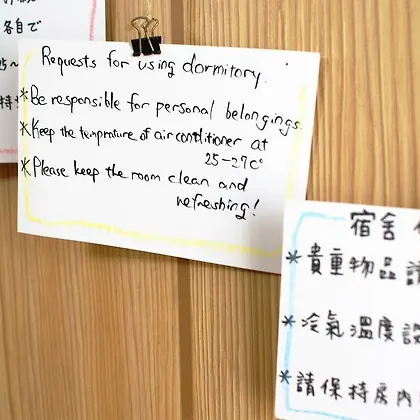 各自で
25～
持
Requests for using dormitory.
*Be responsible for personal belongings.
*Keep the temprature of air conditioner at
25-27c°
*Please keep the room clean and
refreshing!
宿舍
*貴重物品請
*冷氣溫度設
*請保持房內